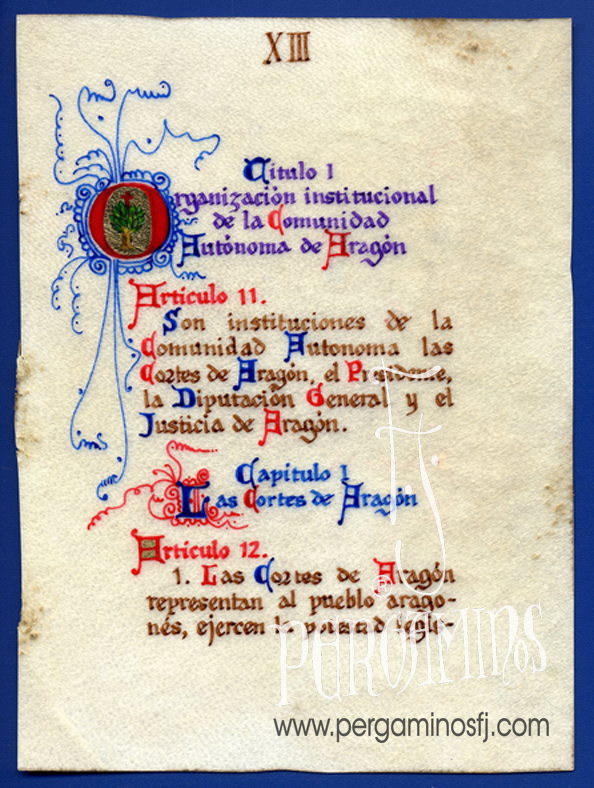 XIII
Título I
Organización institucional
de la Comunidad
Autónoma de Aragón
Artículo 11.
Son instituciones de la
Comunidad Autonoma las
Cortes de Aragón, el Presidente,
la Diputación General y el
Justicia de Aragón.
Capítulo I
Las Cortes de Aragón
Artículo 12.
1. Las Cortes de Aragón
representan al pueblo arago-
nés, ejercen la potestad legis-
FJ
®
PERGAMINOS
www.pergaminosfj.com